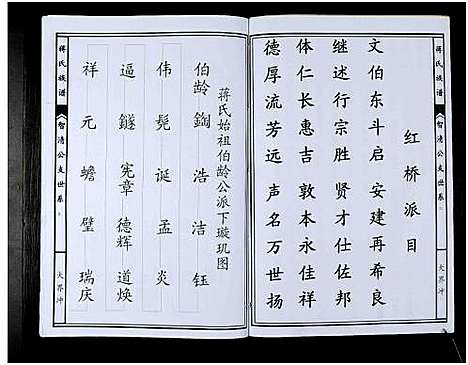 蒋氏族谱
智清公支世系
大界冲
红桥派目
文伯东斗启 安建再希良
继述行宗胜 贤才仕佐邦
体仁长惠吉 敦本永佳祥
德厚流芳远 声名万世扬
蒋氏始祖伯龄公派下璇玑图
伯龄 𨱔 浩 洁 钰
伟 髡 诞 孟 炎
逼 鐩 宪章 德辉 道焕
祥 元 蟾 璧 瑞庆
蒋氏族谱
智清公支世系
大界冲